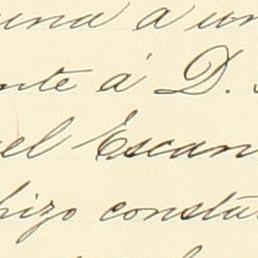 una a un
nte á D.
el Escan
hizo constar